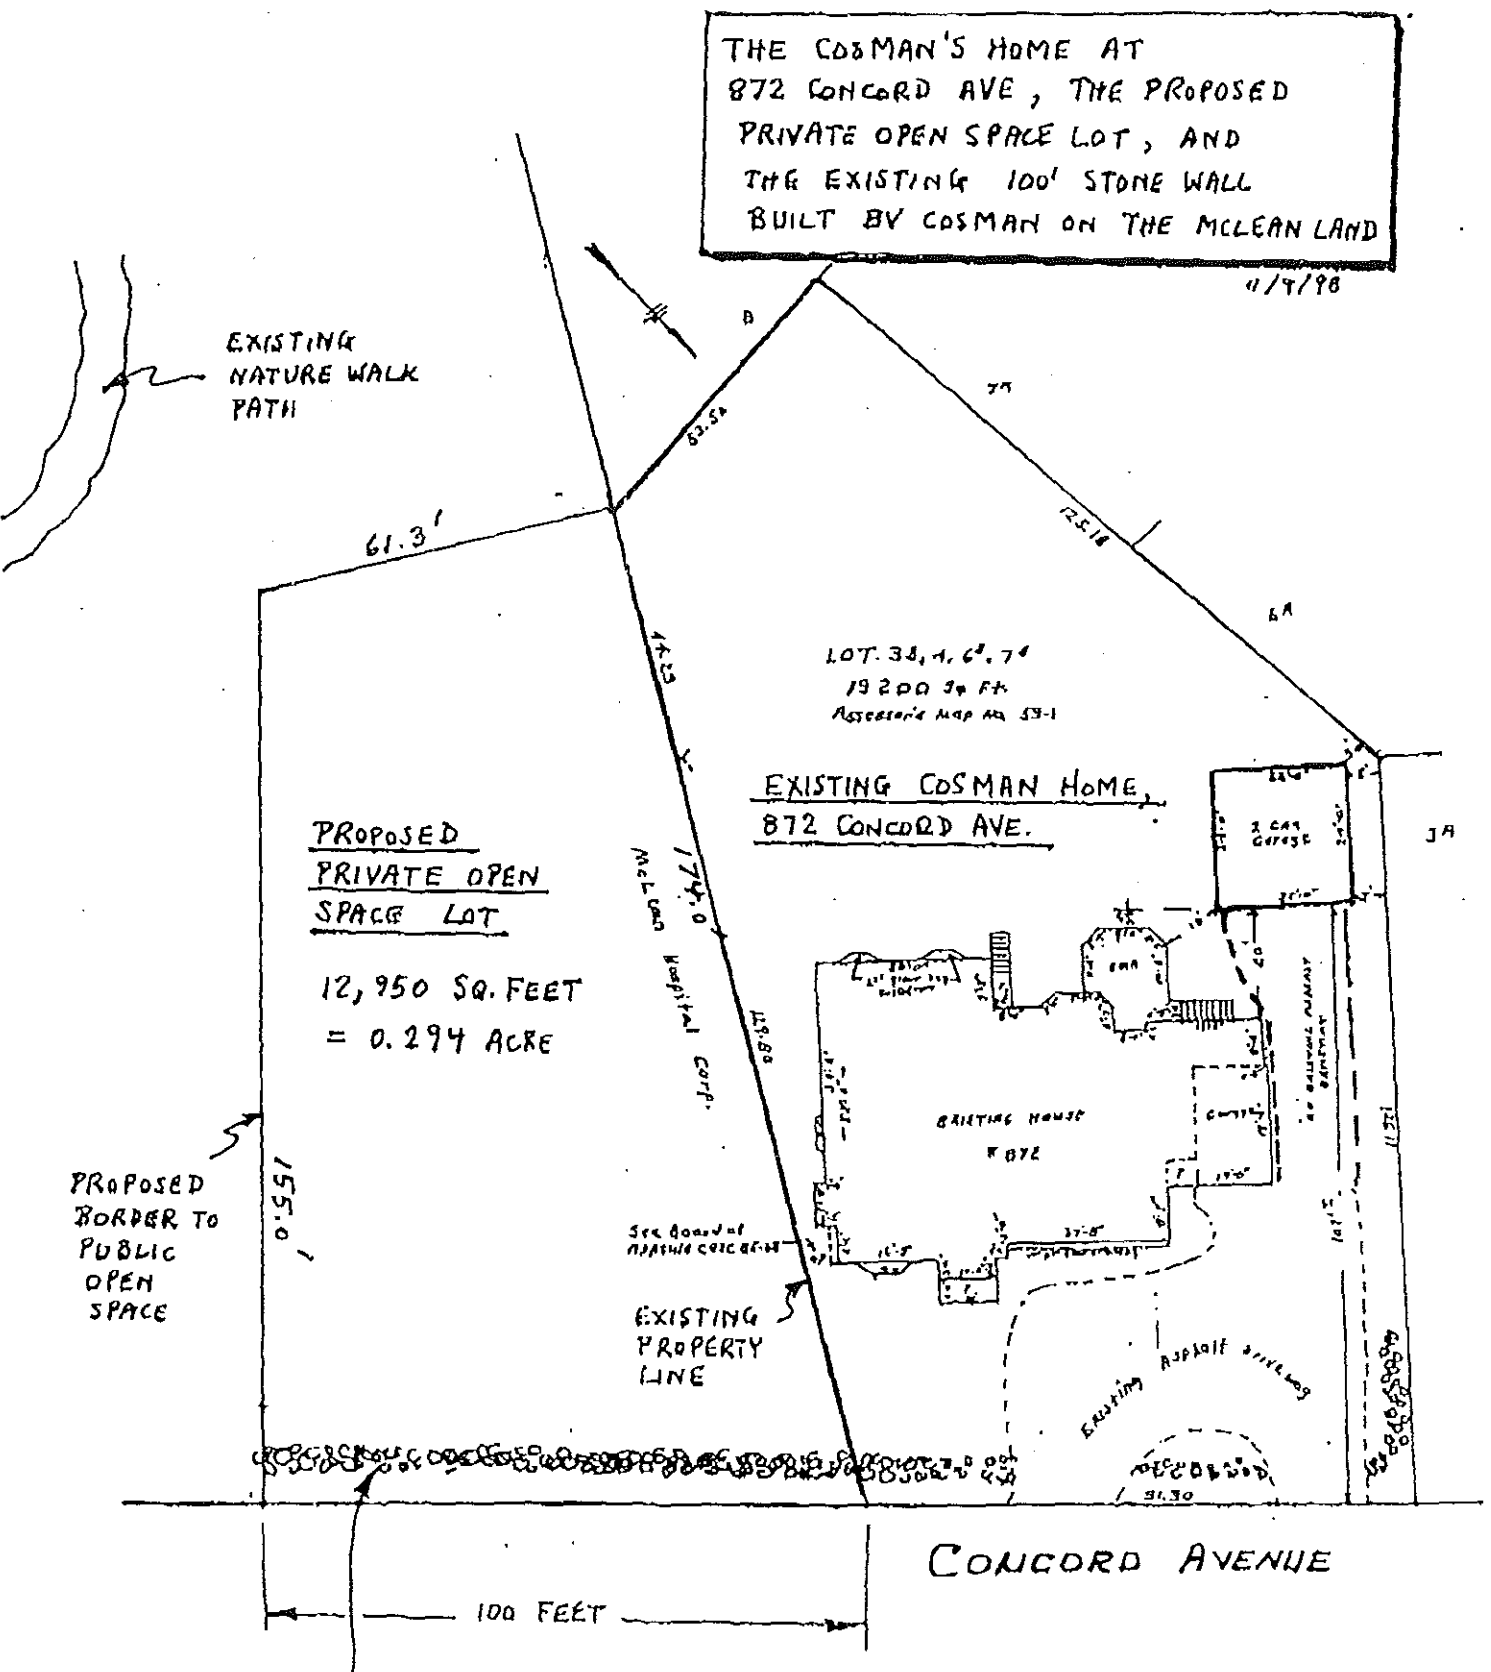 THE COSMAN'S HOME AT
872 CONCORD AVE, THE PROPOSED
PRIVATE OPEN SPACE LOT, AND
THE EXISTING 100' STONE WALL
BUILT BY COSMAN ON THE MCLEAN LAND
11/9/98
EXISTING
NATURE WALK
PATH
B
7A
125.18
61.3'
6A
19200 Sq Ft.
Assessor's Map No 59-1
EXISTING COSMAN HOME,
872 CONCORD AVE.
2 CAR
Garage
3A
PROPOSED
PRIVATE OPEN
SPACE LOT
12,950 SQ. FEET
= 0.294 ACRE
174.0
McLean Hospital Corp.
129.80
EXISTING HOUSE
# 872
PROPOSED
BORDER TO
PUBLIC
OPEN
SPACE
155.0'
See Board of
EXISTING
PROPERTY
LINE
Existing Asphalt driveway
91.30
CONCORD AVENUE
100 FEET